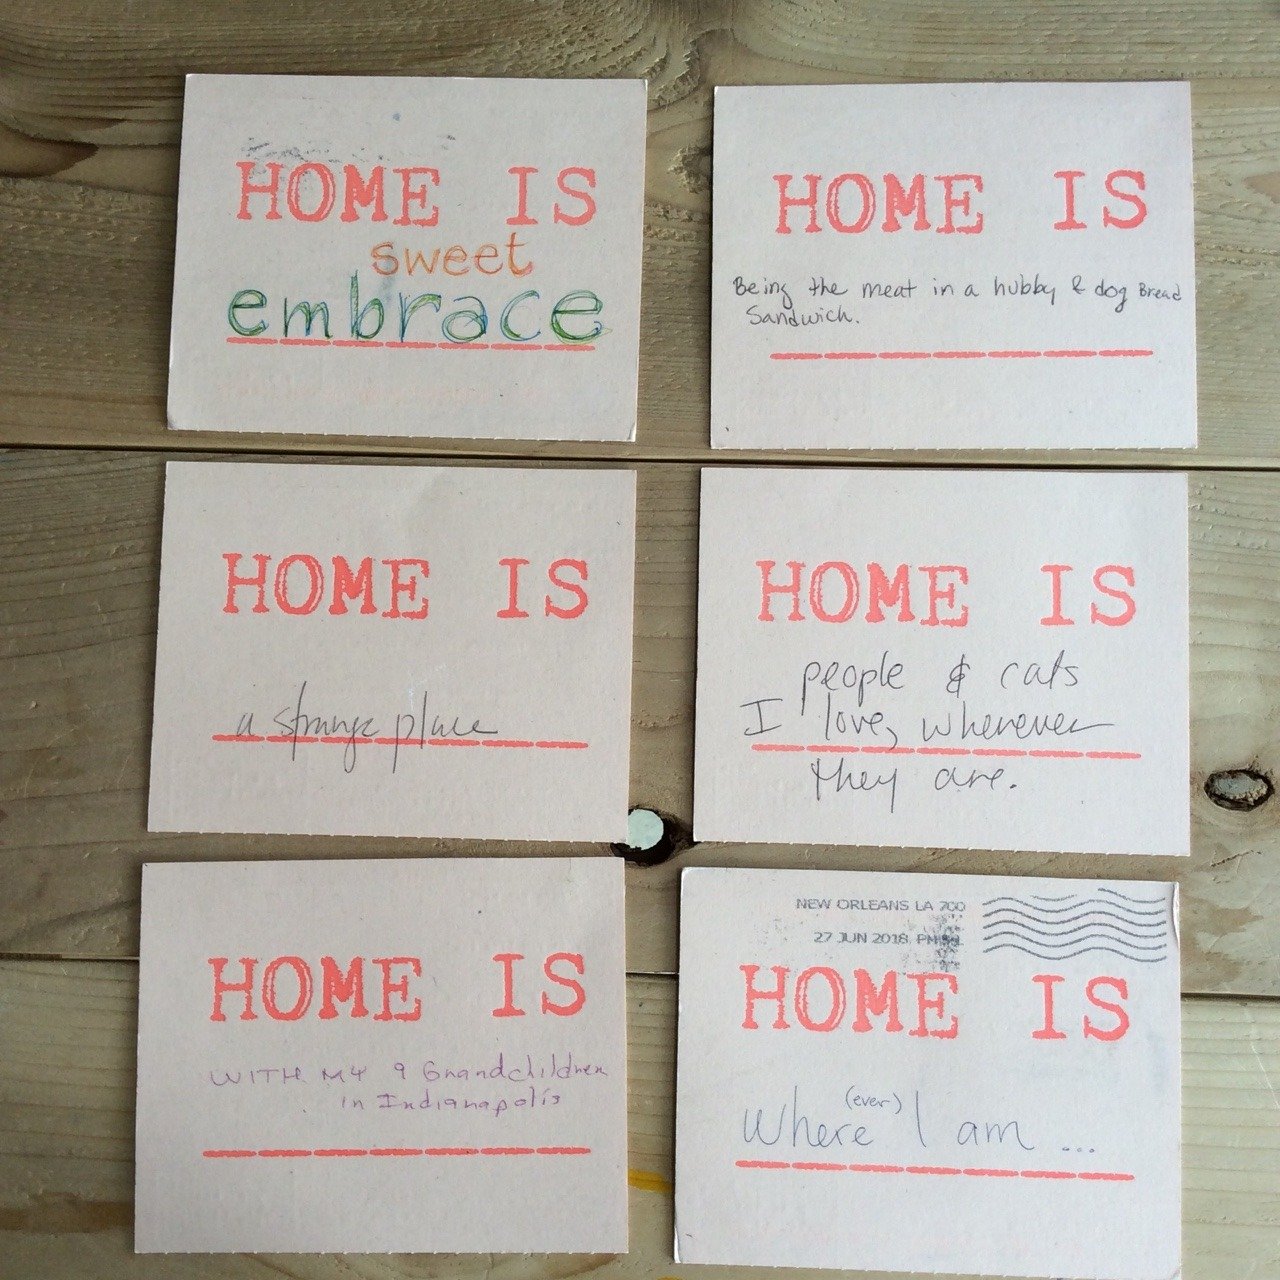 HOME IS
sweet
embrace
HOME IS
Being the meat in a hubby & dog Bread
Sandwich.
HOME IS
a strange place
HOME IS
people & cats
I love, wherever
they are.
HOME IS
WITH MY 9 Grandchildren
in Indianapolis
NEW ORLEANS LA 700
27 JUN 2018 PM
HOME IS
(ever)
Where I am ...